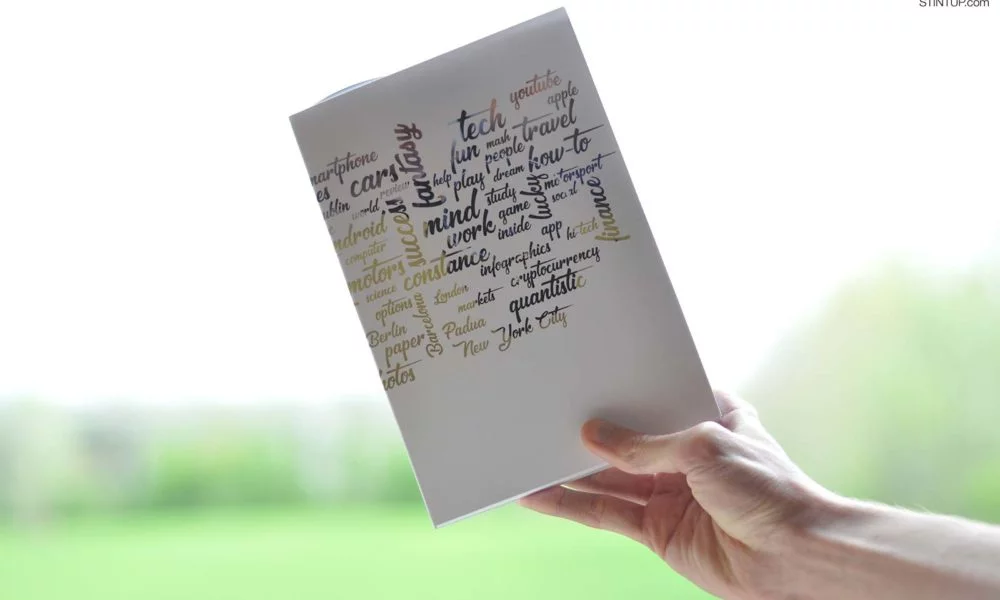 STINTUP.com
youtube
apple
tech
travel
fun
mash
people
how-to
fantasy
martphone
cars
help
play
dream
lucky
motorsport
social
es
review
study
finance
ublin
world
success
mind
game
android
work
inside
app
hi-tech
computer
motors
constance
infographics
science
cryptocurrency
options
London
markets
quantistic
Berlin
Barcelona
Padua
paper
New York City
hotos